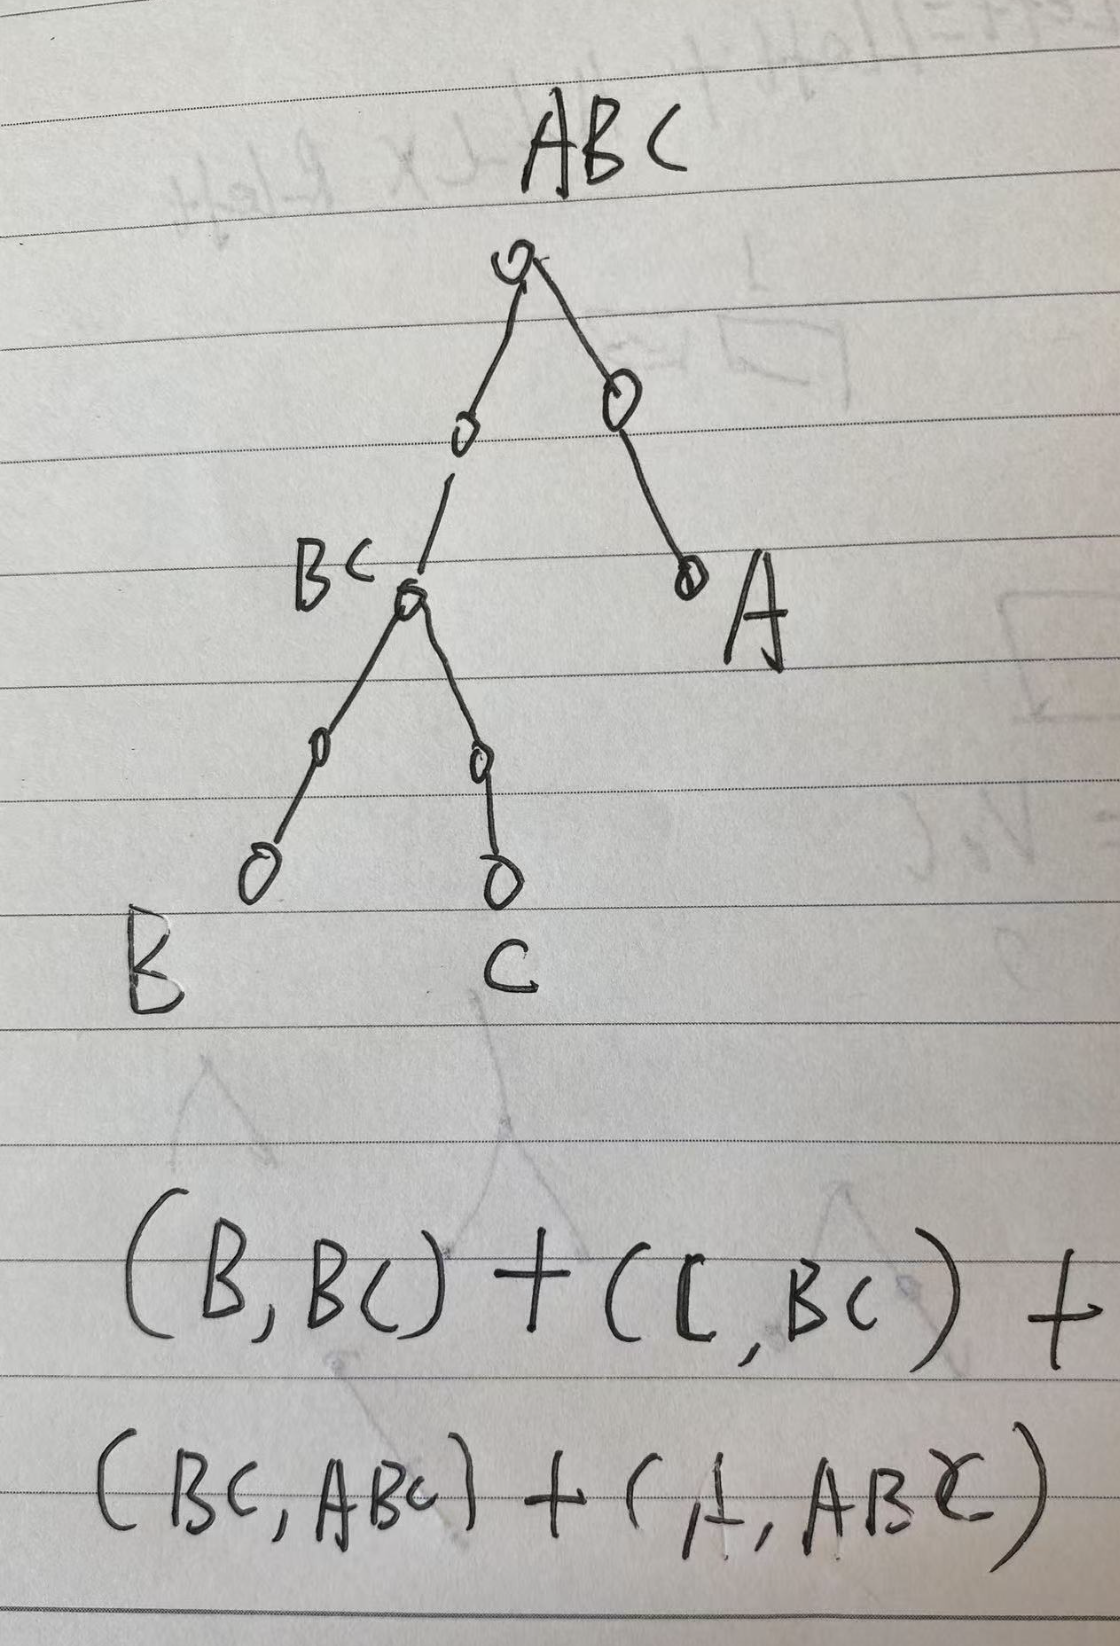 ABC
BC
A
B
C
(B,BC)+(C,BC)+
(BC,ABC)+(A,ABC)